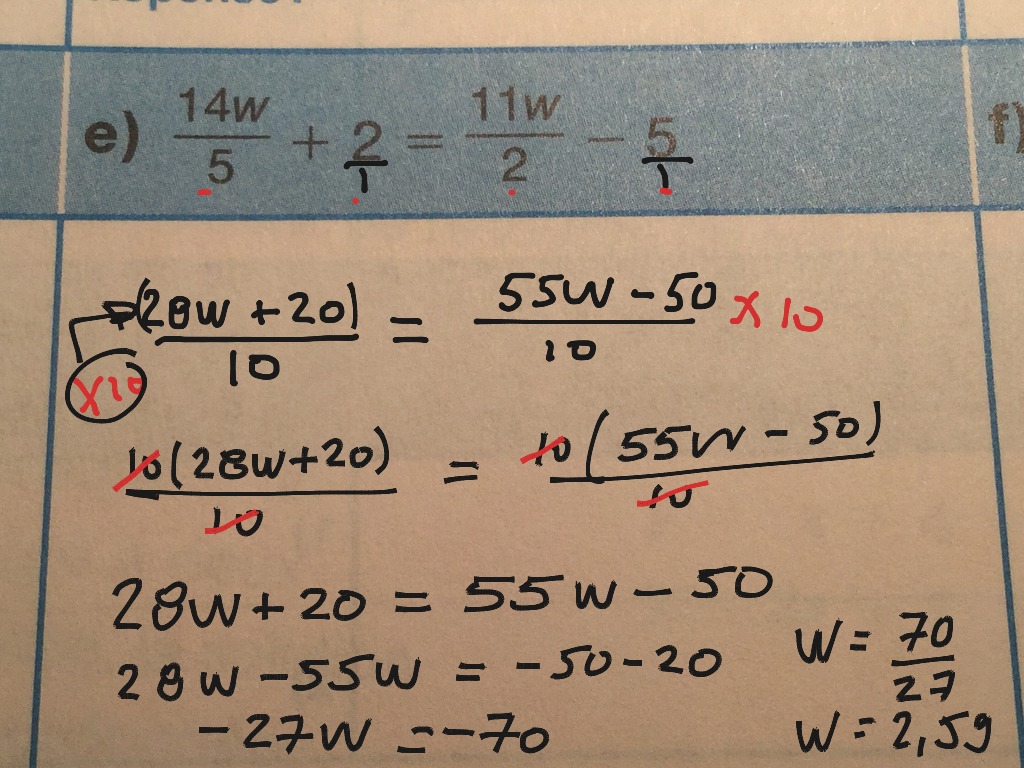 e) 14w/5 + 2/1 = 11w/2 - 5/1
f)
(28w + 20)/10 = 55w - 50/10 x 10
x10
10(28w+20)/10 = 10(55w - 50)/10
28w + 20 = 55w - 50
28w - 55w = -50 - 20
-27w = -70
w = 70/27
w = 2,59